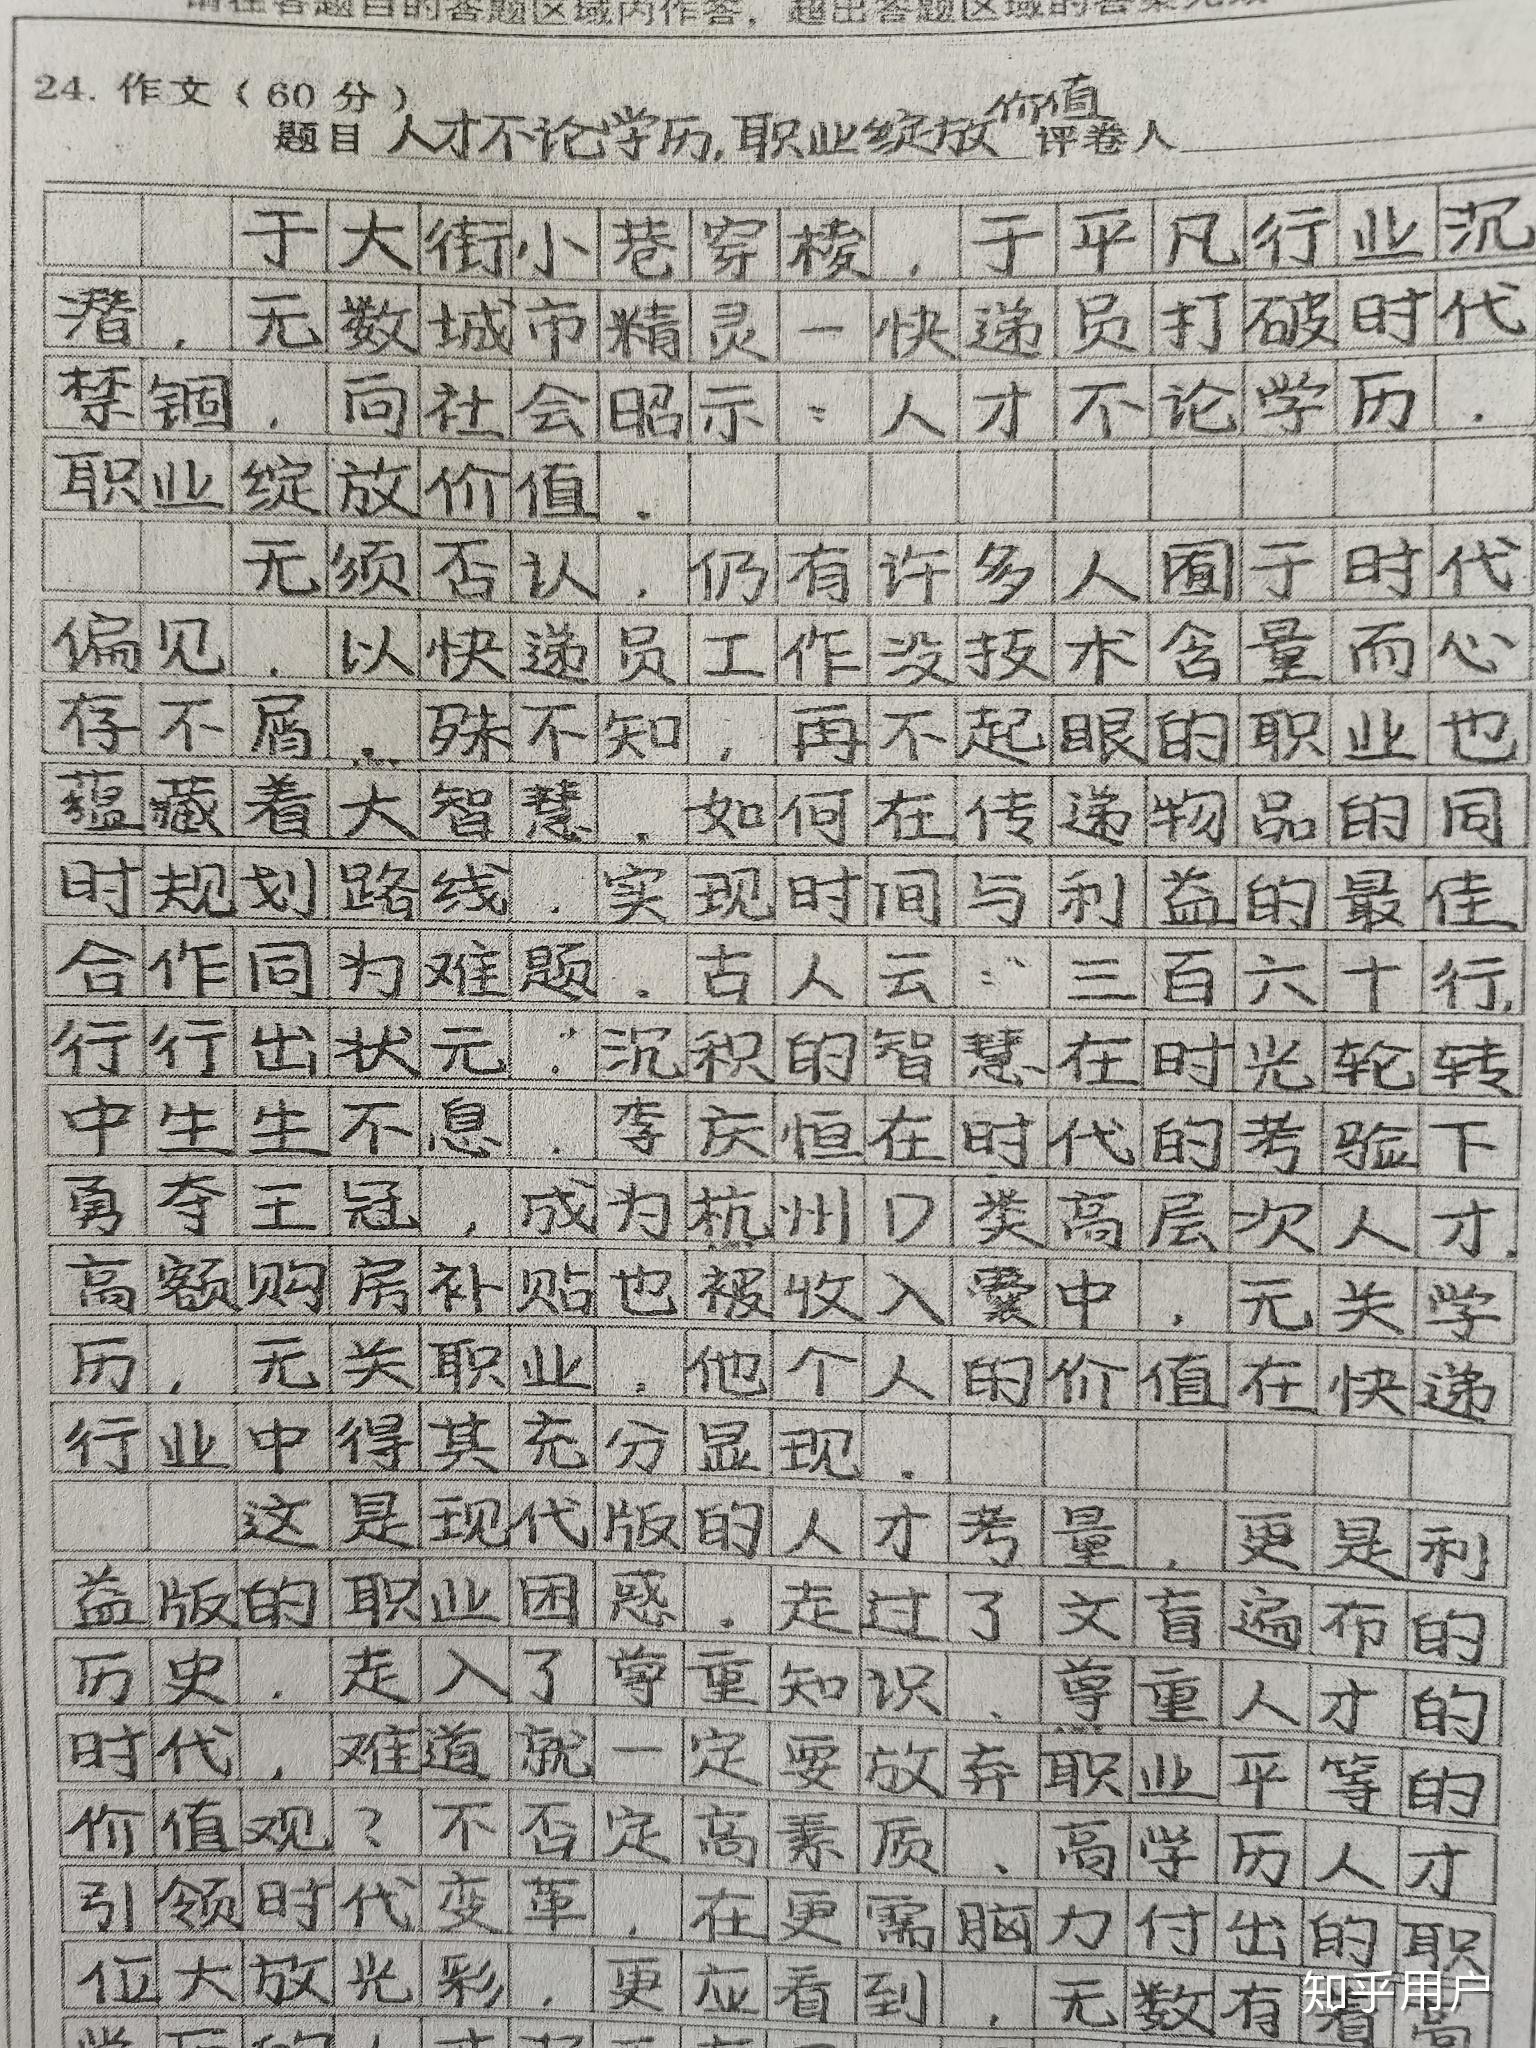 请在各题目的答题区域内作答，超出答题区域的答案无效
24. 作文（60分）
题目 人才不论学历,职业绽放价值 评卷人
于大街小巷穿梭，于平凡行业沉
潜，无数城市精灵—快递员打破时代
禁锢，向社会昭示：人才不论学历，
职业绽放价值。
无须否认，仍有许多人囿于时代
偏见，以快递员工作没技术含量而心
存不屑。殊不知，再不起眼的职业也
蕴藏着大智慧，如何在传递物品的同
时规划路线，实现时间与利益的最佳
合作同为难题。古人云：“三百六十行,
行行出状元”。沉积的智慧在时光轮转
中生生不息，李庆恒在时代的考验下
勇夺王冠，成为杭州D类高层次人才，
高额购房补贴也被收入囊中，无关学
历，无关职业，他个人的价值在快递
行业中得其充分显现。
这是现代版的人才考量，更是利
益版的职业困惑。走过了文盲遍布的
历史，走入了尊重知识、尊重人才的
时代，难道就一定要放弃职业平等的
价值观？不否定高素质、高学历人才
引领时代变革，在更需脑力付出的职
位大放光彩，更应看到，无数有着高
知乎用户